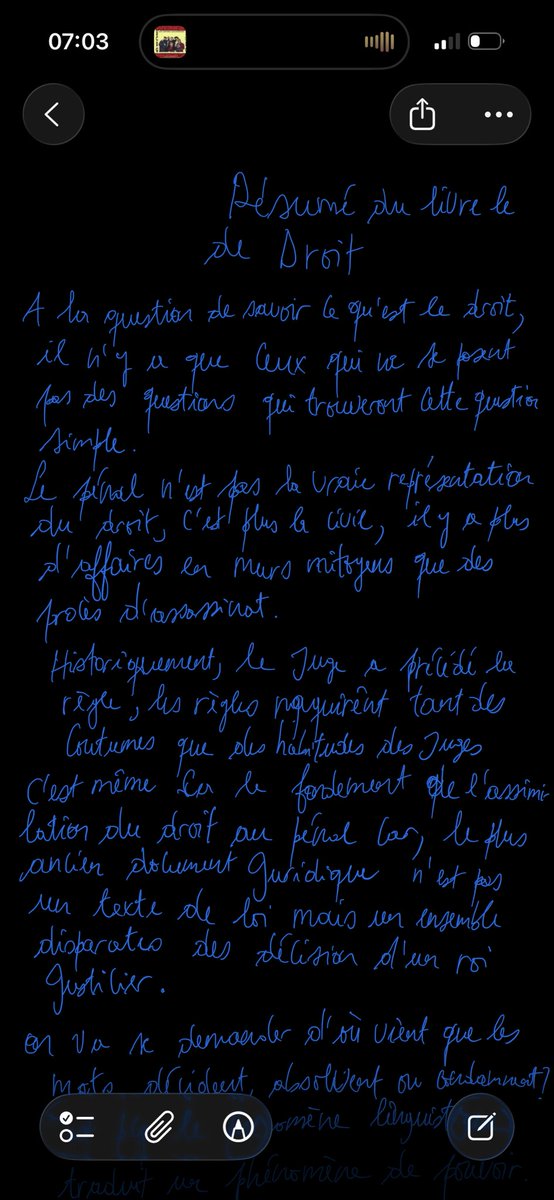 07:03
Résumé du livre le
de Droit
A la question de savoir ce qu'est le droit,
il n'y a que ceux qui ne se posent
pas des questions qui trouveront cette question
simple.
Le pénal n'est pas la vraie représentation
du droit, c'est plus le civil, il y a plus
d'affaires en murs mitoyens que des
procès d'assassinat.
Historiquement, le Juge a précédé la
règle, les règles naquirent tant des
coutumes que des habitudes des Juges
C'est même ça le fondement de l'assimi
lation du droit au pénal car, le plus
ancien document Juridique n'est pas
un texte de loi mais un ensemble
disparates des décision d'un roi
Justicier.
On va se demander d'où vient que les
mots décident, absolvent ou condamnent?
phénomène
traduit un phénomène de pouvoir.